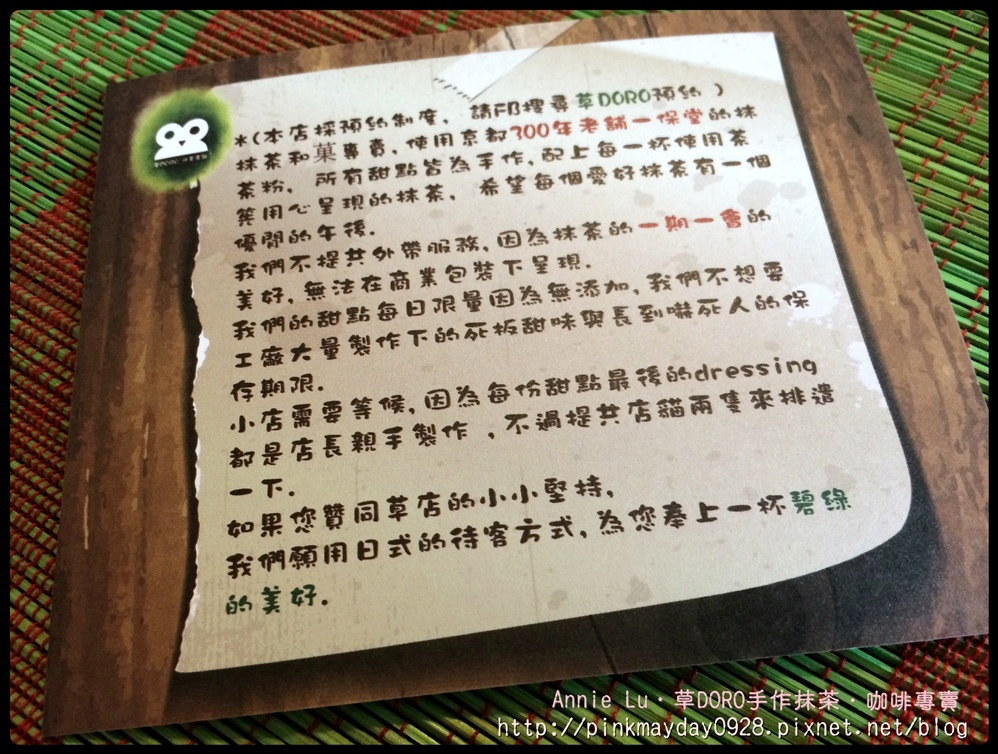 *(本店採預約制度, 請FB搜尋草DORO預約 )
抹茶和菓專賣,使用京都300年老舖一保堂的抹
茶粉, 所有甜點皆為手作,配上每一杯使用茶
筅用心呈現的抹茶, 希望每個愛好抹茶有一個
優閒的午後.
我們不提共外帶服務,因為抹茶的一期一會的
美好,無法在商業包裝下呈現.
我們的甜點每日限量因為無添加,我們不想要
工廠大量製作下的死板甜味與長到嚇死人的保
存期限.
小店需要等候,因為每份甜點最後的dressing
都是店長親手製作 ,不過提共店貓兩隻來排遣
一下.
如果您贊同草店的小小堅持,
我們願用日式的待客方式,為您奉上一杯碧綠
的美好.
Annie Lu·草DORO手作抹茶·咖啡專賣
http://pinkmayday0928.pixnet.net/blog